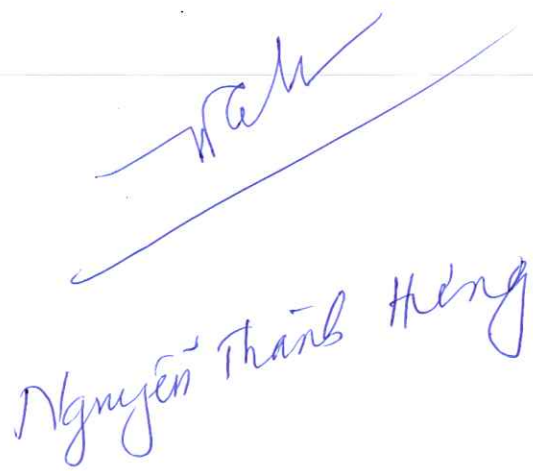 Nguyễn Thành Hưng